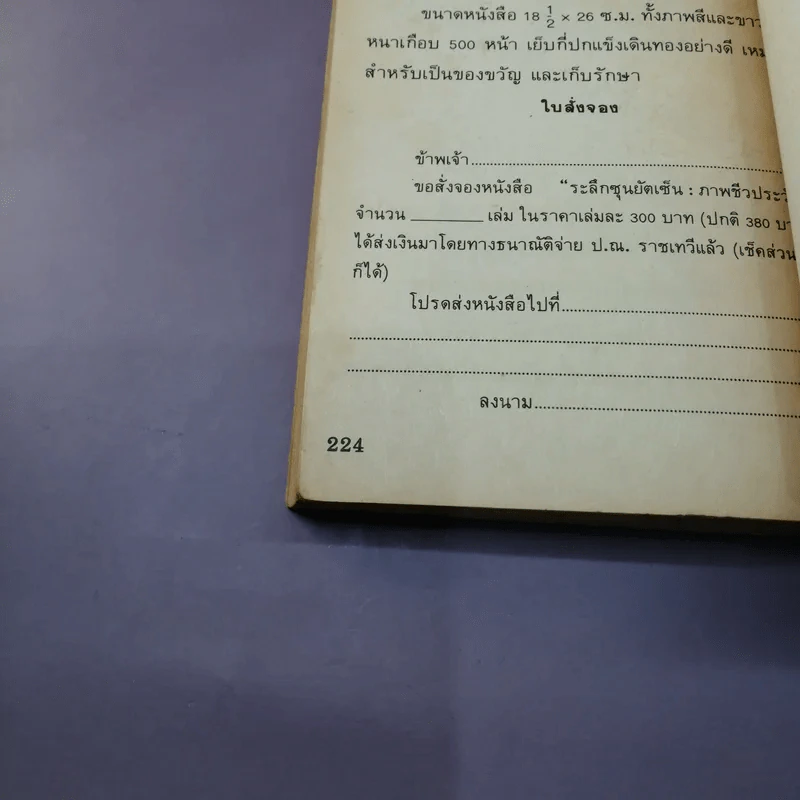 ขนาดหนังสือ 18 1/2 × 26 ซ.ม. ทั้งภาพสีและขาว
หนาเกือบ 500 หน้า เย็บกี่ปกแข็งเดินทองอย่างดี
สำหรับเป็นของขวัญ และเก็บรักษา
ใบสั่งจอง
ข้าพเจ้า
ขอสั่งจองหนังสือ “ระลึกซุนยัตเซ็น : ภาพชีวประวั
จำนวน ________ เล่ม ในราคาเล่มละ 300 บาท (ปกติ 380
ได้ส่งเงินมาโดยทางธนาณัติจ่าย ป.ณ. ราชเทวีแล้ว (เช็คส่วน
ก็ได้)
โปรดส่งหนังสือไปที่
ลงนาม
224